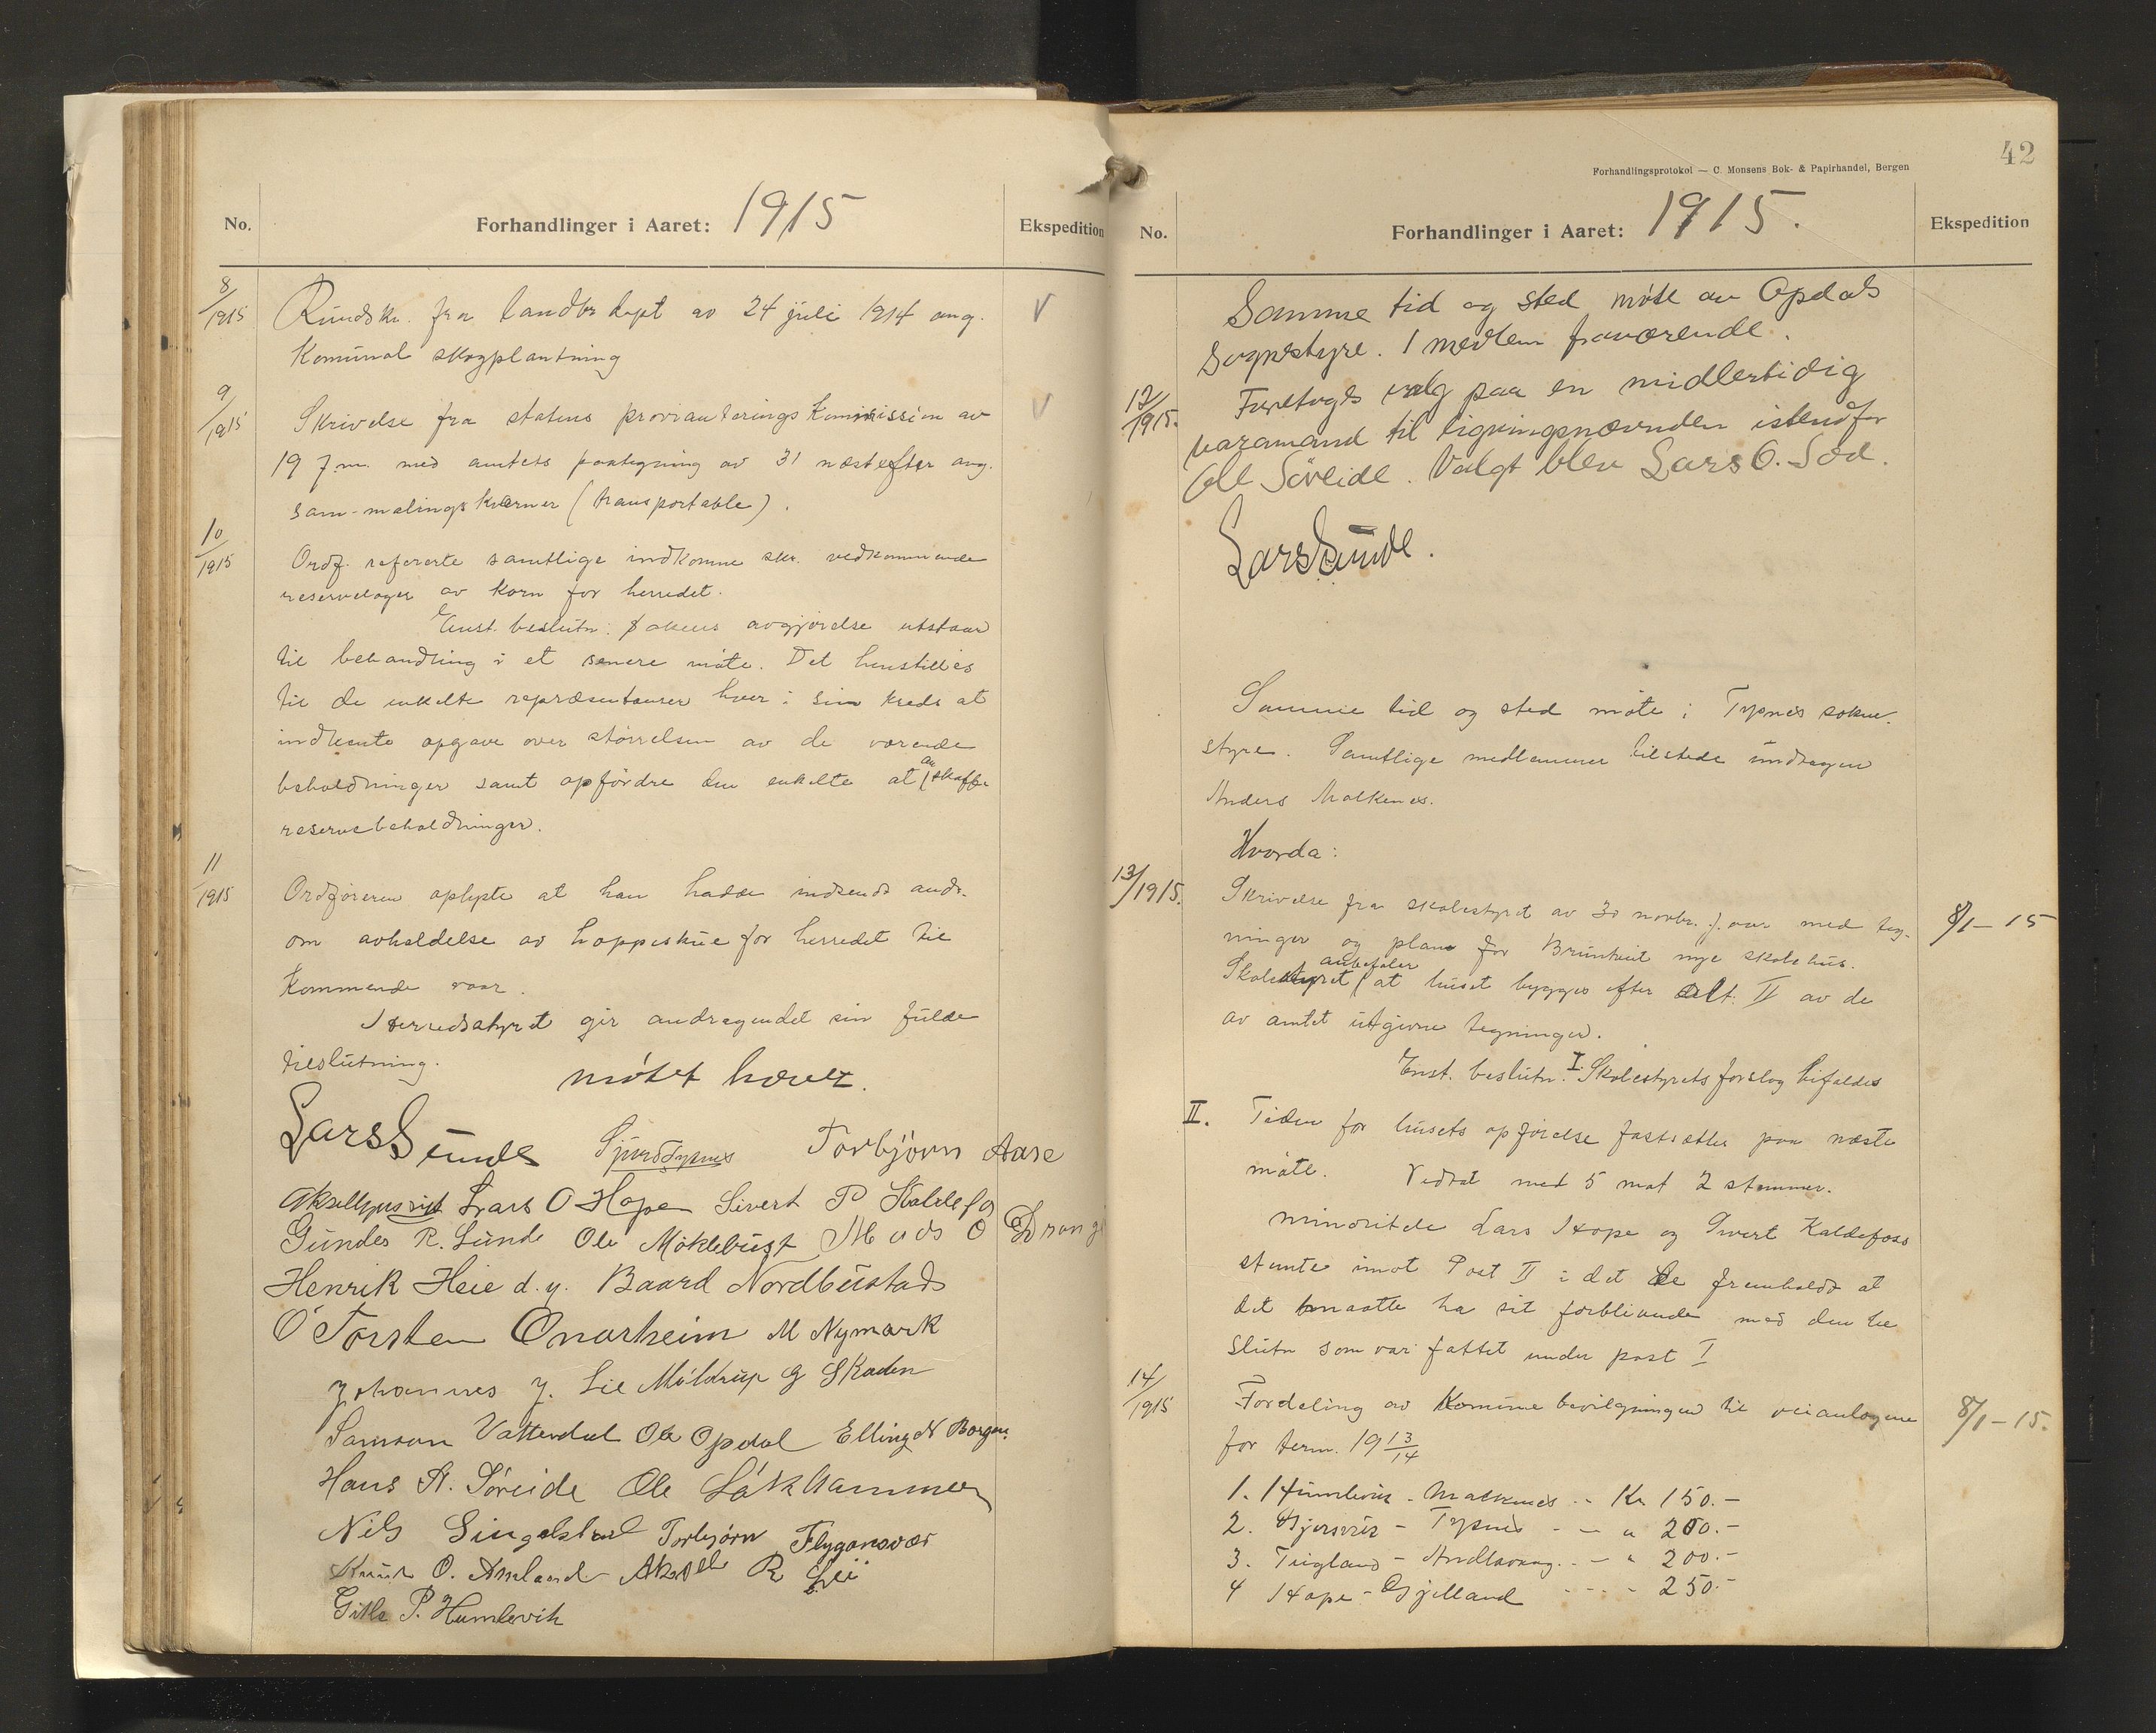 No.
Forhandlinger i Aaret: 1915
Ekspedition
8/1915
Rundskr. fra landbr dept av 24 juli 1914 ang.
V
Komunal skogplantning
9/1915
Skrivelse fra statens provianteringskommission av
V
19 f.m. med amtets paategning av 31 næstefter ang.
sam-malingskværner (transportable).
10/1915
Ordf. refererte samtlige indkomne skr. vedkommende
reservelager av korn for herredet.
Enst. beslutn: sakens avgjørelse utstaar
til behandling i et senere møte. Det henstilles
til de enkelte repræsentanter hver i sin kreds at
indhente opgave over størrelsen av de værende
beholdninger samt opfordre den enkelte at anskaffe
reservebeholdninger.
11/1915
Ordføreren oplyste at han hadde indsendt andr.
om avholdelse av hoppeskue for herredet til
kommende vaar.
Herredsstyret gir andragendet sin fulde
tilslutning.
møtet hævet.
Lars Sunde Sjurd Tysnes Torbjörn Aase
Lars O Hope Sivert P Kaldefos
Gunder R. Lunde Ole Möklebust Mads O Drange
Henrik Heie d.y. Baard Nordbustad
O Torsten Onarheim M Nymark
Johannes J. Lie Möldrup G Skaden
Samson Vatterdal Ole Opdal Elling N Borgen.
Hans A. Söreide Ole Lökhammer
Nils Singelstad Torbjørn Flygansvær
Knut O. Aksel R Lie
Gitle P. Humlevik
42
Forhandlingsprotokol — C. Monsens Bok- & Papirhandel, Bergen
No.
Forhandlinger i Aaret: 1915.
Ekspedition
Samme tid og sted møte av Opdals
Sognestyre. 1 medlem fraværende.
12/1915.
Foretoges valg paa en midlertidig
varamand til ligningsnævnden istedfor
Ole Söreide. Valgt blev Lars O. Sod.
Lars Sunde.
Samme tid og sted møte i Tysnes sokne-
styre. Samtlige medlemmer tilstede undtagen
Anders Malkenes.
Hvorda:
13/1915.
Skrivelse fra skolestyret av 30 novbr. f. aar med teg-
8/1-15
ninger og plan for Bruntveit nye skolehus.
Skolestyret anbefaler at huset bygges efter alt. II av de
av amtet utgivne tegninger.
Enst. beslutn: I. Skolestyrets forslag bifaldes
II. Tiden for husets opførelse fastsættes paa næste
møte. Vedtat med 5 mot 2 stemmer.
Minoritete Lars Hope og Sivert Kaldefoss
stemte imot Post II i det de fremholdt at
det maatte ha sit forblivende med den be
slutn som var fattet under post I
14/1915
Fordeling av Kommune bevilgningen til veianlægene
8/1-15.
for term. 19 13/14
1. Humlevik - Malkenes - - Kr. 150.-
2. Gjersvik - Tysnes - - " 200.-
3. Tveitland - - " 200.-
4 Hope - Gjelland - - - - 250.-